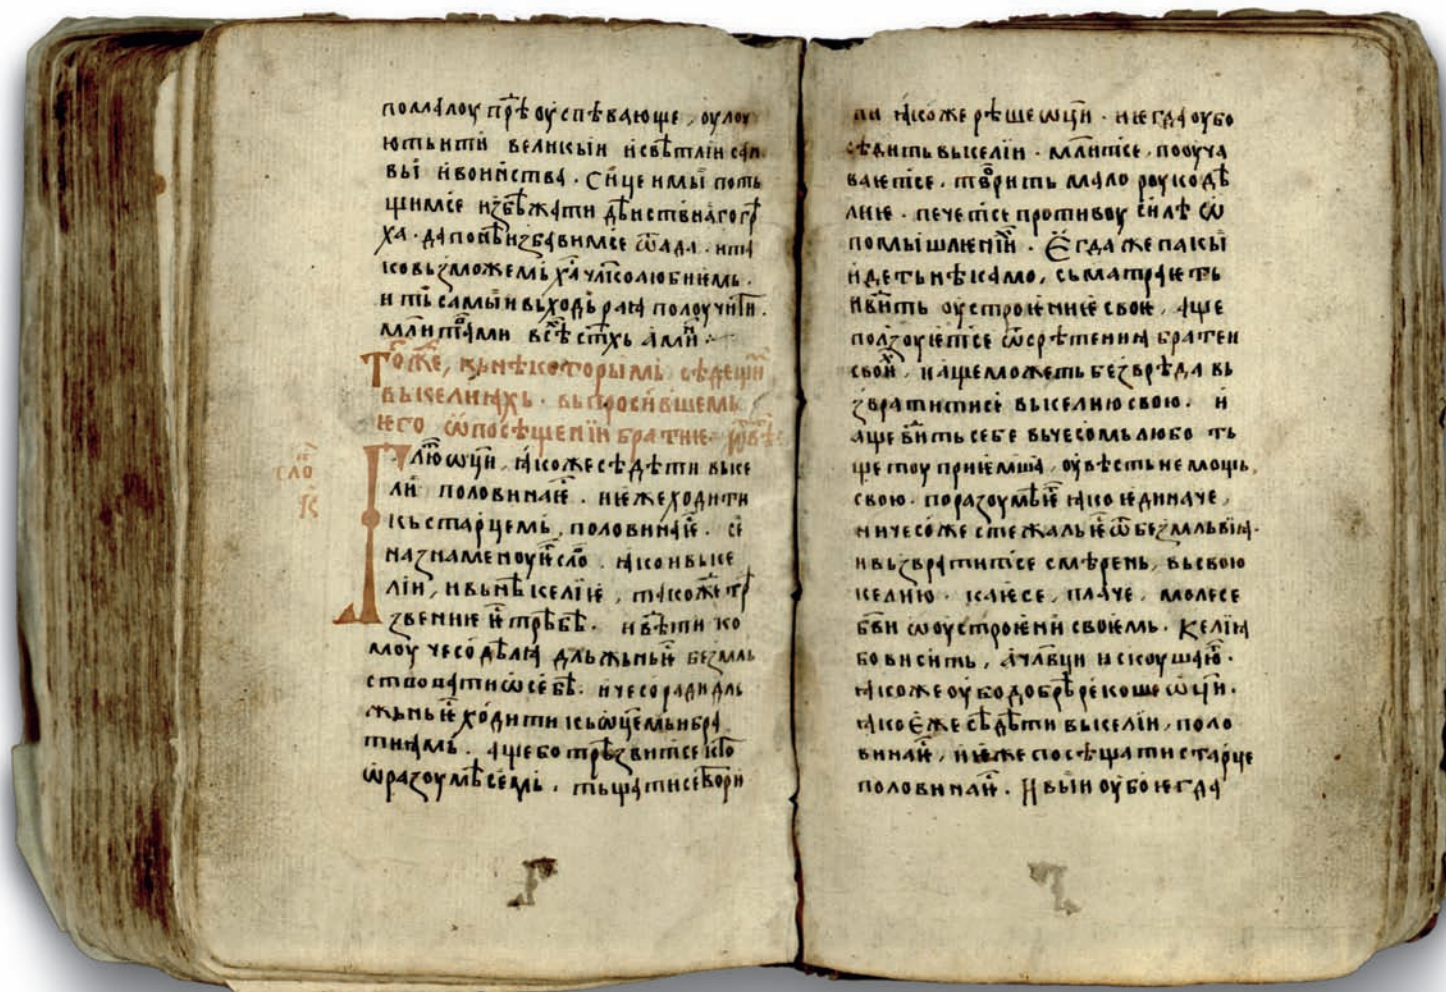 помалоу прѣоуспѣвающе, оулоу
ють ити великыи и свѣтлїи сан
вы и воиньства. Сице и мы поть
щимсе избѣжати дѣиствїа го грѣ
ха. да по нѣ избавимсе ѿ ада. и та
ко възможемь хⷭа члⷦолюбиемь.
и ть самыи въходь рая полоучити.
млⷭитвами всѣ стⷯхь аминⸯ
Тогоⷤже, кь нѣкоторымь сѣдещїи
вь келияхь. вьпросившемь
ѥго ѿ посѣщенїи братиѥ.
сло
Глю ѿци, ꙗкоже сѣдѣти вь ке
ли половинаѥ. и ѥже ходити
кь старцемь, половинаѥ. сѥ
назнаменоуѥ сло. ꙗко и вь ке
лїи, и вьнѣ келїѥ, такожⷣе трѣ
звениѥ ѥ трѣбѣ. и вѣти ко
моу чесо дѣлꙗ длъжьнь ѥ безмль
ствовати ѡ себѣ. и чесо ради дль
жьнь ѥ ходити кь ѡцемь и бра
тиꙗмь. аще бо трѣзвитсе кто
ѡ разоумѣ семь, тьщатисе твори
ти ꙗкоже рѣше ѡци. иѥгда оубо
сѣдить вь келїи. млитсе, пооуча
ваѥтсе. творить мало роукодѣ
лиѥ. печетсе противоу силѣ ѡ
помышлѥнїи. Ѥгда же пакы
идеть нѣкамо, сьматраѥть
и вить оустроѥниѥ своѥ, аще
ползоуѥтсе ѿ срѣтениꙗ братеи
свои, и аще можеть без врѣда вь
звратитисе вь келию свою. и
аще вить себе вь чесомь любо ть
щетоу приѥмша, оувѣсть немощь
свою. поразоумѣѥ ꙗко ѥдиначе,
ничесоже стежаль ѥ ѿ безмльвїꙗ.
и вьзвратитсе смѣрень, вь свою
келию. каѥсе, плаче, молесе
бви ѡ оустроѥни своѥмь. Келїꙗ
бо висить, а члвци искоушаю.
ꙗкоже оубо добрѣ рекоше ѡци.
ꙗко ѥже сѣдѣти вь келїи, поло
винаѥ, и ѥже посѣщати старце
половинаѥ. И вы оубо ѥгда